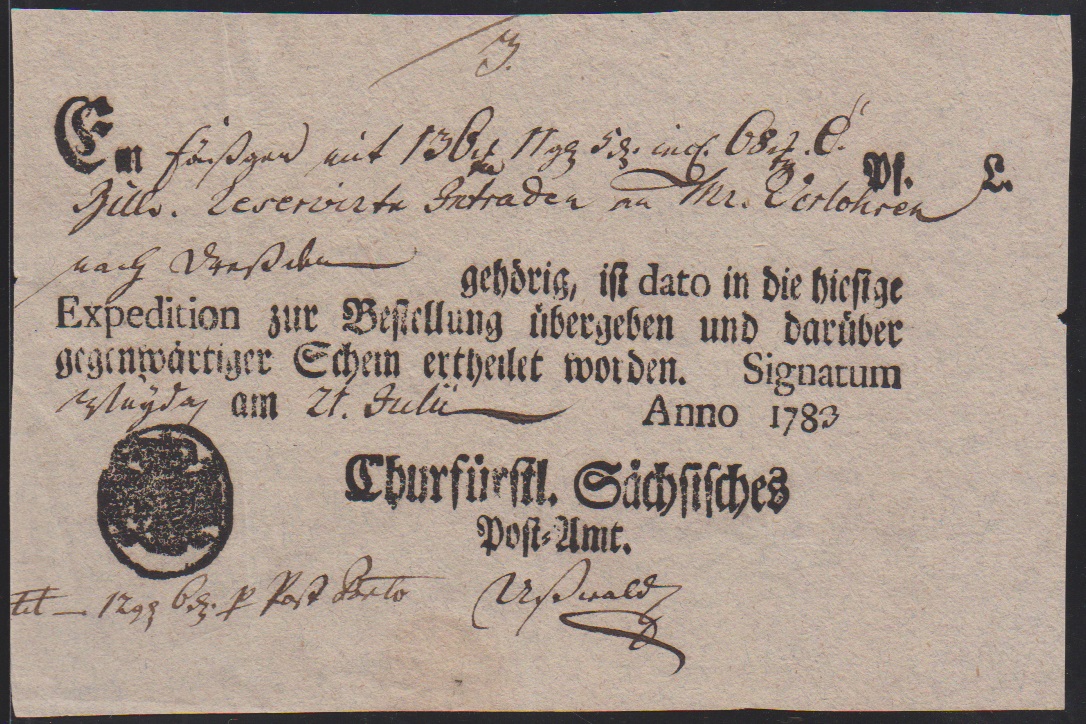 3.
Ein Fäßgen mit 136 11 gg 5 incl. 68
Pf. L.
reservirte Intraden an Mr. Verlohren
nach Dreßden gehörig, ist dato in die hiesige
Expedition zur Bestellung übergeben und darüber
gegenwärtiger Schein ertheilet worden. Signatum
am 21. Julii Anno 1783
Churfürstl. Sächsisches
Post-Amt.
12 gg 6 Post Porto